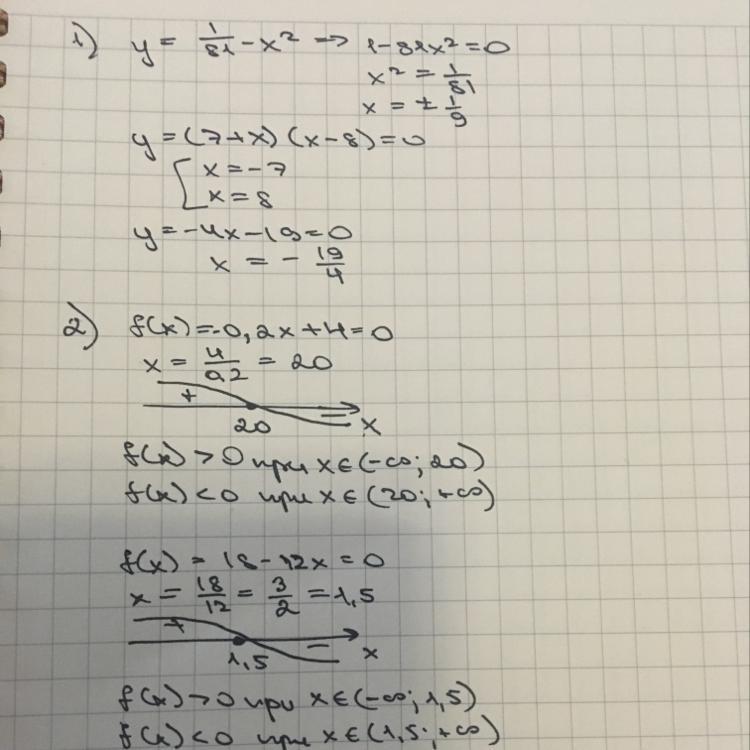 1) y = 1/81 - x² → 1-81x² = 0
x² = 1/81
x = ± 1/9
y = (7+x)(x-8) = 0
[ x = -7
x = 8
y = -4x - 19 = 0
x = - 19/4
2) f(x) = -0,2x + 4 = 0
x = 4/0,2 = 20
+ −
20 x
f(x) > 0 при x ∈ (-∞; 20)
f(x) < 0 при x ∈ (20; +∞)
f(x) = 18 - 12x = 0
x = 18/12 = 3/2 = 1,5
+ −
1,5 x
f(x) > 0 при x ∈ (-∞; 1,5)
f(x) < 0 при x ∈ (1,5; +∞)